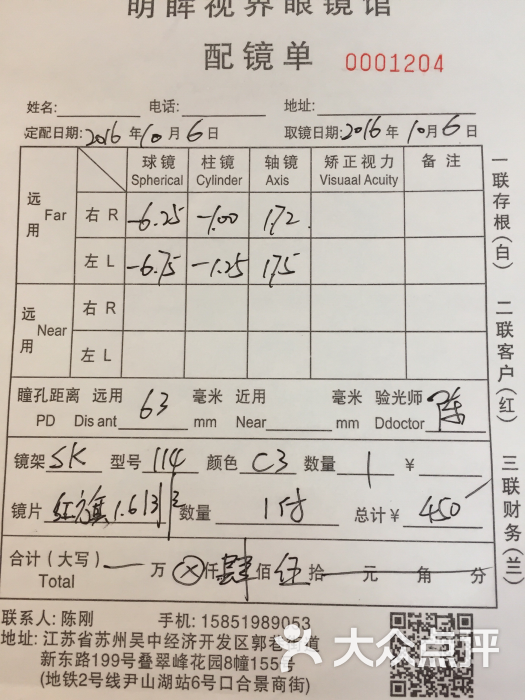 明眸视界眼镜馆
配镜单 0001204
姓名: 电话: 地址:
定配日期: 2016 年 10 月 6 日 取镜日期: 2016 年 10 月 6 日
球镜 柱镜 轴镜 矫正视力 备注
Spherical Cylinder Axis Visuaal Acuity
远用 Far 右 R -6.25 -1.00 172
左 L -6.75 -1.25 175
远用 Near 右 R
左 L
瞳孔距离 远用 63 毫米 近用 毫米 验光师 陈
PD Dis ant mm Near mm Ddoctor
镜架 SK 型号 114 颜色 C3 数量 1 ¥
镜片 1.613 数量 1付 总计¥ 450
合计(大写) 万 仟 肆 佰 伍 拾 元 角 分
Total
联系人: 陈刚 手机: 15851989053
地址: 江苏省苏州吴中经济开发区郭巷街道
新东路199号叠翠峰花园8幢155号
(地铁2号线尹山湖站6号口合景商街)
一联存根(白) 二联客户(红) 三联财务(兰)
大众点评